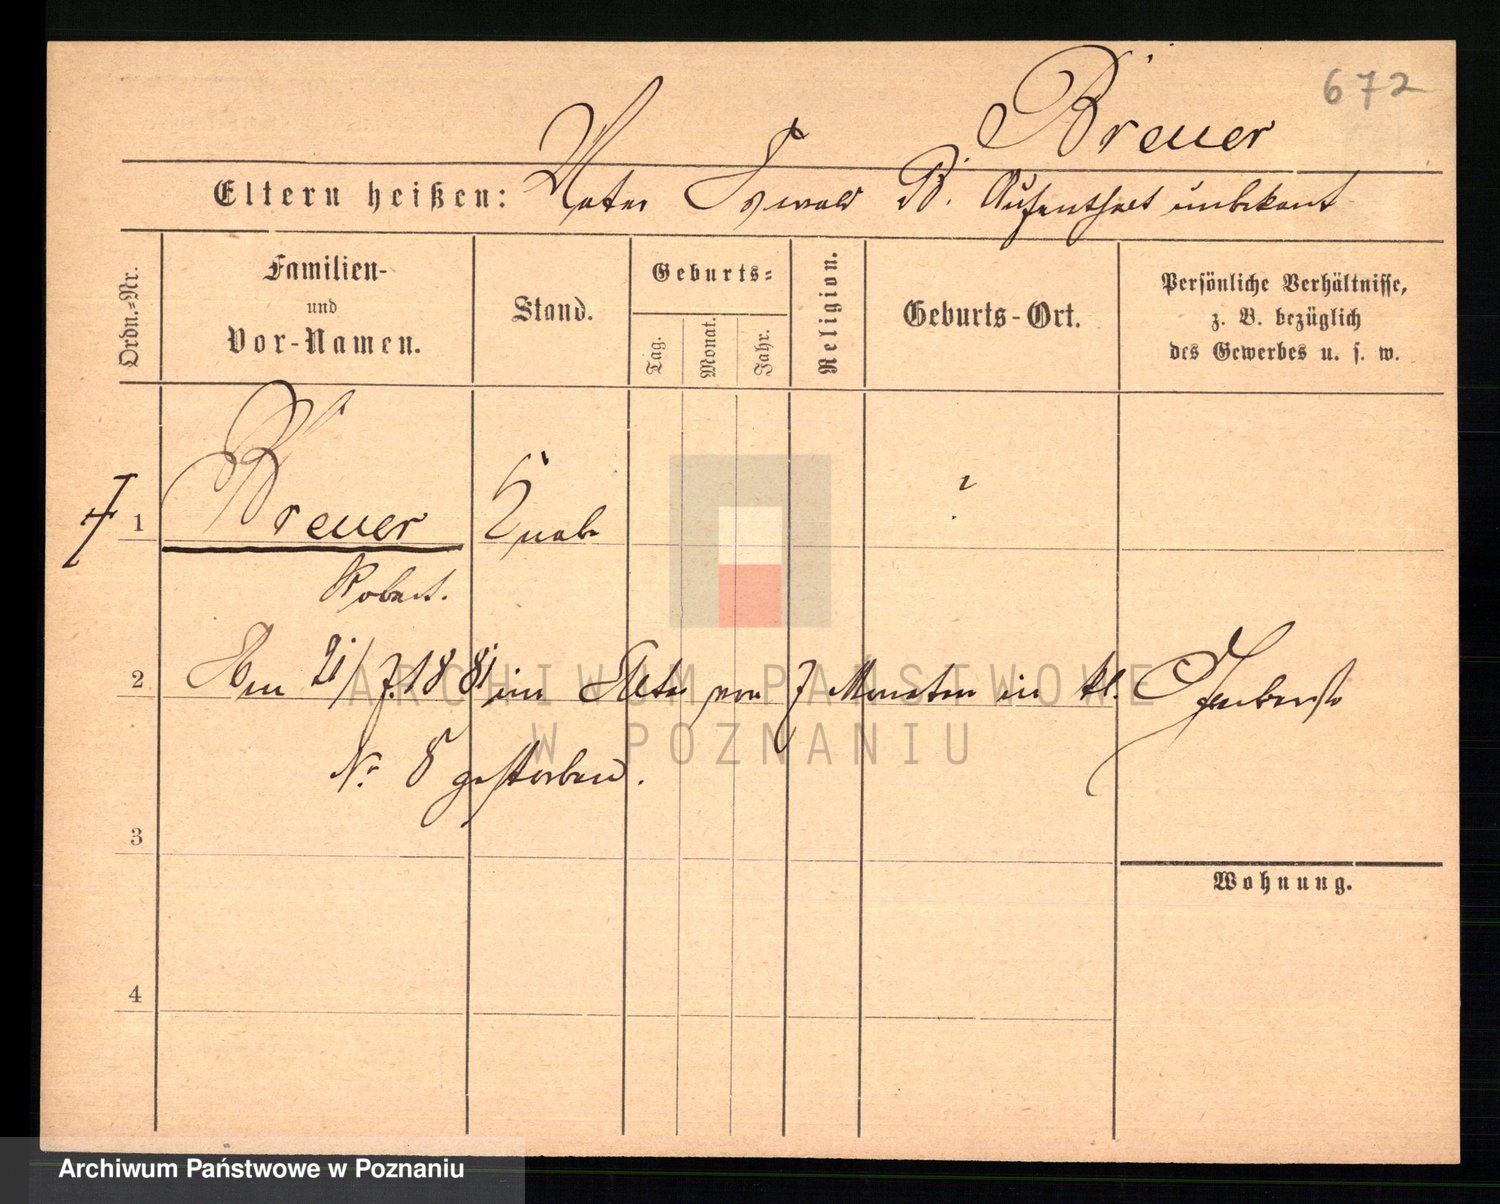 672
Breuer
Eltern heißen: Vater Oswald B. Aufenthalt unbekant
Ordn.-Nr.
Familien-
und
Vor-Namen.
Stand.
Geburts-
Tag.
Monat.
Jahr.
Religion.
Geburts-Ort.
Persönliche Verhältnisse,
z. B. bezüglich
des Gewerbes u. s. w.
1 Breuer Knabe ?
Robert.
2 Am 21/7. 1881 im Alter von 7 Monaten in kl.
No 8 gestorben.
3
Wohnung.
4
ARCHIWUM PAŃSTWOWE
W POZNANIU
Archiwum Państwowe w Poznaniu